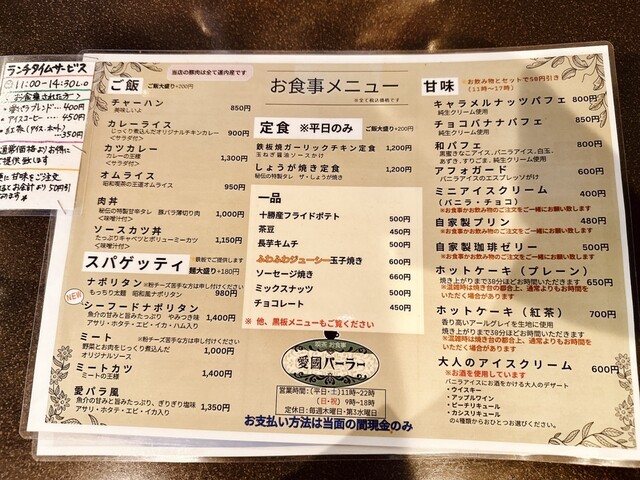 ランチタイムサービス
11:00-14:30L.O
お食事された方へ
ブレンド…400円
・アイスコーヒー…450円
・紅茶(アイス・ホット)
…350円
通常価格よりお得に
ご提供致します
更に甘味をご注文
お会計より50円引
ご飯
ご飯大盛り+200円
チャーハン 850円
美味しいよ
カレーライス
じっくり煮込んだオリジナルチキンカレー 900円
<サラダ付>
カツカレー
カレーの王様 1,300円
<サラダ付>
オムライス
昭和喫茶の王道オムライス 950円
肉丼
秘伝の特製甘辛タレ 豚バラ薄切り肉 1,000円
<味噌汁付>
ソースカツ丼
たっぷりキャベツとボリューミーカツ 1,150円
<味噌汁付>
スパゲッティ
鉄板でご提供します
麺大盛り+180円
ナポリタン ※粉チーズ苦手な方は申し付けください
もっちり太麺 昭和風ナポリタン 980円
NEW
シーフードナポリタン
魚介の甘みと旨たっぷり やみつき味 1,400円
アサリ・ホタテ・エビ・イカ・ハム入り
ミート ※粉チーズ苦手な方は申し付けください
野菜とお肉をじっくり煮込んだ 1,000円
オリジナルソース
ミートカツ
ミートの王様 1,400円
愛パラ風
魚介の甘みと旨みたっぷり、ぎりぎり塩味 1,350円
アサリ・ホタテ・エビ・イカ入り
当店の豚肉は全て道内産です
お食事メニュー
※全て税込価格です
定食 ※平日のみ
ご飯大盛り+200円
鉄板焼ガーリックチキン定食 1,200円
玉ねぎ醤油ソースかけ
しょうが焼き定食 1,200円
秘伝の特製タレ ザ・しょうが焼き
一品
十勝産フライドポテト 500円
茶豆 450円
長芋キムチ 500円
ふわふわジューシー玉子焼き 660円
ソーセージ焼き 600円
ミックスナッツ 500円
チョコレート 450円
※ 他、黒板メニューもご覧ください
喫茶 お食事
愛國パーラー
営業時間：(平日・土)11時~22時
(日・祝) 9時~18時
定休日：毎週木曜日・第3水曜日
お支払い方法は当面の間現金のみ
甘味
※お飲み物とセットで50円引き
(11時~17時)
キャラメルナッツパフェ 800円
純生クリーム使用
チョコバナナパフェ 800円
純生クリーム使用
和パフェ 800円
黒蜜きなこアイス、バニラアイス、白玉、
あずき、すりごま、純生クリーム使用
アフォガード 600円
バニラアイスのエスプレッソがけ
ミニアイスクリーム 400円
(バニラ・チョコ)
※お食事かお飲物のご注文をご一緒にお願い致します
自家製プリン 480円
※お食事かお飲物のご注文をご一緒にお願い致します
自家製珈琲ゼリー 500円
※お食事かお飲物のご注文をご一緒にお願い致します
ホットケーキ (プレーン)
焼き上がりまで30分ほどお時間いただきます 650円
※混雑時は焼き台の都合上、通常よりもお時間を
いただく場合があります
ホットケーキ (紅茶) 700円
香り高いアールグレイを生地に使用
焼き上がりまで30分ほどお時間いただきます
※混雑時は焼き台の都合上、通常よりもお時間を
いただく場合があります
大人のアイスクリーム 600円
※お酒を使用しています
バニラアイスにお酒をかける大人のデザート
・ウイスキー
・アップルワイン
・ピーチリキュール
・カシスリキュール
の4種類からおひとつお選びください。